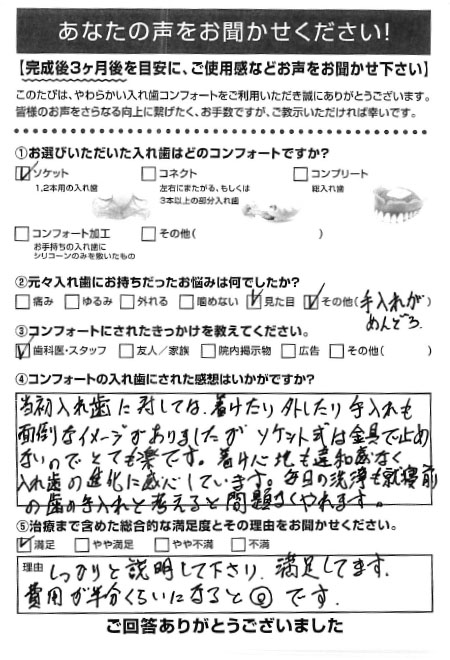 あなたの声をお聞かせください!
【完成後3ヶ月後を目安に、ご使用感などお声をお聞かせ下さい】
このたびは、やわらかい入れ歯コンフォートをご利用いただき誠にありがとうございます。
皆様のお声をさらなる向上に繋げたく、お手数ですが、ご教示いただければ幸いです。
①お選びいただいた入れ歯はどのコンフォートですか?
ソケット
1,2本用の入れ歯
コネクト
左右にまたがる、もしくは
3本以上の部分入れ歯
コンプリート
総入れ歯
コンフォート加工
お手持ちの入れ歯に
シリコーンのみを敷いたもの
その他( )
②元々入れ歯にお持ちだったお悩みは何でしたか?
痛み ゆるみ 外れる 噛めない 見た目 その他(手入れが
めんどう)
③コンフォートにされたきっかけを教えてください。
歯科医・スタッフ 友人/家族 院内掲示物 広告 その他( )
④コンフォートの入れ歯にされた感想はいかがですか?
当初入れ歯に対しては、着けたり外したり手入れも
面倒なイメージがありましたがソケット式は金具で止め
ないのでとても楽です。着け心地も違和感なく
入れ歯の進化に感心しています。毎日の洗浄も就寝前
の歯の手入れと考えると問題なくやれます。
⑤治療まで含めた総合的な満足度とその理由をお聞かせください。
満足 やや満足 やや不満 不満
理由 しっかりと説明して下さり、満足してます。
費用が半分くらいになると◎です。
ご回答ありがとうございました